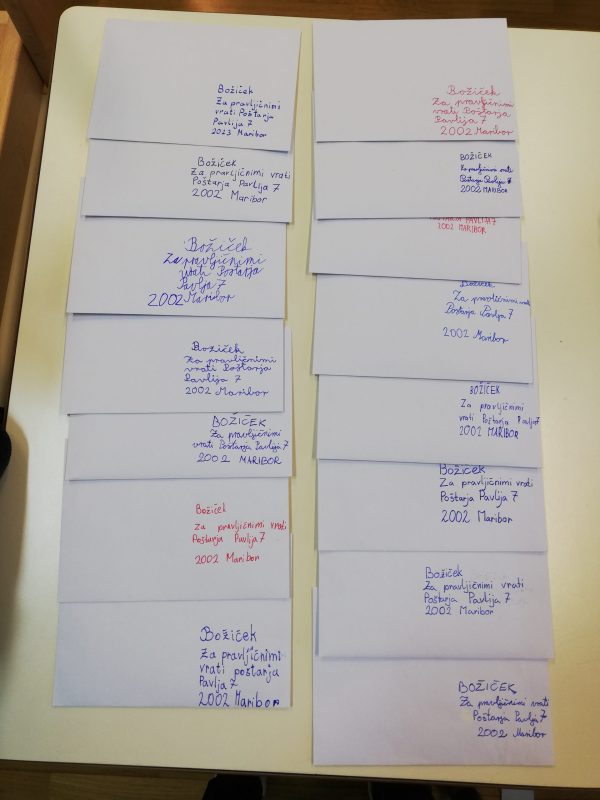 Božiček
Za pravljičnimi
vrati Poštarja
Pavlija 7
2023 Maribor
Božiček
Za pravljičnimi vrati
Poštarja Pavlija 7
2002 Maribor
Božiček
Za pravljičnimi
vrati Poštarja
Pavlja 7
2002 Maribor
Božiček
Za pravljičnimi
vrati Poštarja
Pavlija 7
2002 Maribor
BOŽIČEK
Za pravljičnimi
vrati Poštarja Pavlija 7
2002 MARIBOR
Božiček
za pravljičnimi vrati
Poštarja Pavlija 7
2002 Maribor
Božiček
Za pravljičnimi
vrati poštarja
Pavlja 7
2002 Maribor
Božiček
Za pravljičnimi
vrati Poštarja
Pavlija 7
2002 Maribor
BOŽIČEK
vrati
Pavlija 7
2002 MARIBOR
PAVLIJA 7
2002 MARIBOR
Božiček
Za pravljičnimi vrati
Poštarja Pavlija 7
2002 Maribor
BOŽIČEK
Za pravljičnimi
vrati Poštarja Pavlija 7
2002 MARIBOR
Božiček
Za pravljičnimi vrati
Poštarja Pavlija 7
2002 Maribor
Božiček
Za pravljičnimi vrati
Poštarja Pavlija 7
2002 Maribor
BOŽIČEK
Za pravljičnimi vrati
Poštarja Pavlja 7
2002 Maribor